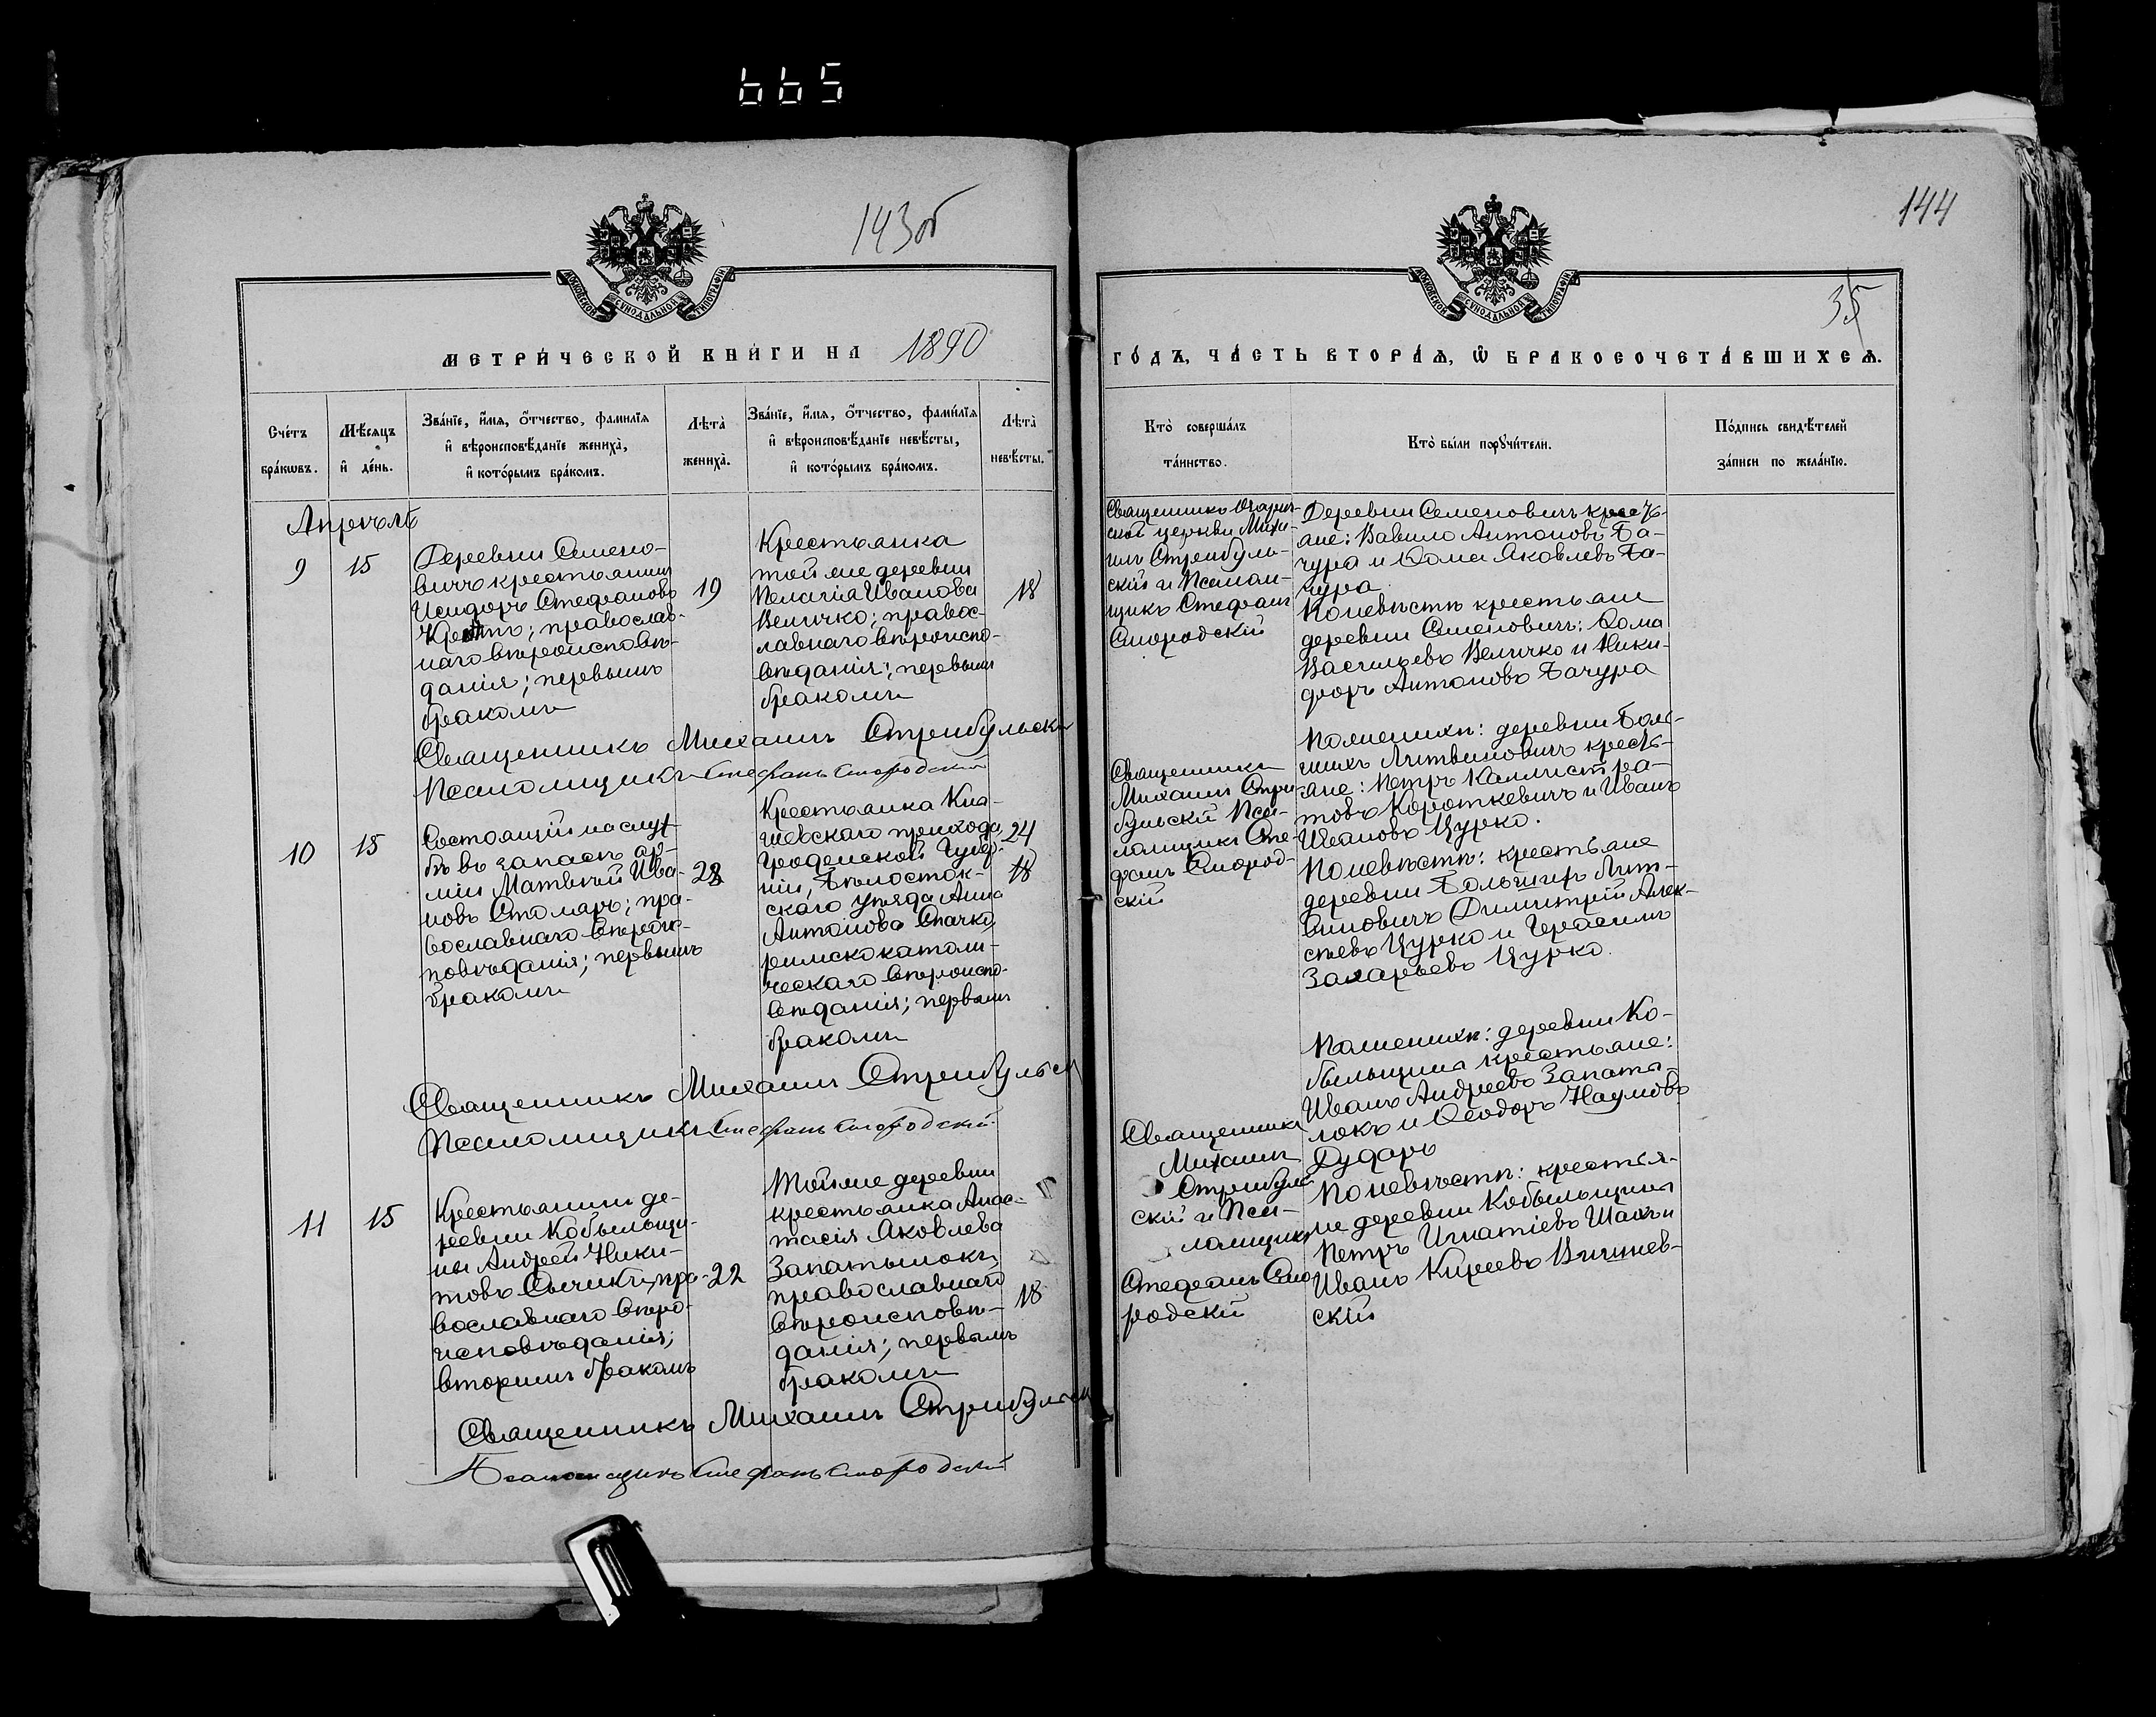 665
143об
144
35
МОСКОВСКОЙ СѴНОДАЛЬНОЙ ТИПОГРАФІИ
МОСКОВСКОЙ СѴНОДАЛЬНОЙ ТИПОГРАФІИ
МЕТРИ́ЧЕСКОЙ КНИ́ГИ НА 1890
ГО́ДЪ, ЧА́СТЬ ВТОРА́Ѧ, Ѽ БРАКОСОЧЕТА́ВШИХСѦ.
Сче́тъ
бра́кѡвъ.
Мѣ́сѧцъ
и҆ де́нь.
Зва́нїе, и҆́мѧ, ѻ҆́тчество, фами́лїѧ
и҆ вѣроисповѣ́данїе жениха̀,
и҆ кото́рымъ бра́комъ.
Лѣ́та̀
жениха̀.
Зва́нїе, и҆́мѧ, ѻ҆́тчество, фами́лїѧ
и҆ вѣроисповѣ́данїе невѣ́сты,
и҆ кото́рымъ бра́комъ.
Лѣ́та̀
невѣ́сты.
Кто̀ соверша́лъ
та́инство.
Кто̀ бы́ли порꙋчи́тели.
По́дпись свидѣ́телей
за́писи по жела́нїю.
Апрѣль
9
15
Деревни Семено-
вичъ крестьянинъ
Исидоръ Стефановъ
православ-
наго вѣроисповѣ-
данія; первымъ
бракомъ
19
Крестьянка
той же деревни
Пелагія Иванова
Величко; правос-
лавнаго вѣроиспо-
вѣданія; первымъ
бракомъ
18
Священникъ
ской церкви Миха-
илъ Стрибуль-
скій и Псалом-
щикъ Стефанъ
Смородскій
Деревни Семеновичъ кресть-
яне: Вавило Антоновъ Ба-
чура и Ѳома Яковлевъ Ба-
чура
По невѣстѣ крестьяне
деревни Семеновичъ: Ѳома
Васильевъ Величко и Ники-
форъ Антоновъ Бачура
Священникъ Михаилъ Стрибульскі
Псаломщикъ Стефанъ Смородскій
10
15
Состоящій на служ-
бѣ въ запасѣ ар-
міи Матвѣй Ива-
новъ Столяръ; пра-
вославнаго вѣроис-
повѣданія; первымъ
бракомъ
28
Крестьянка Кня-
шевскаго прихода,
Гродненской Губер-
ніи, Бѣлосток-
скаго уѣзда Анна
Антонова Спачко
римско католи-
ческаго вѣроиспо-
вѣданія; первымъ
бракомъ
24
18
Священникъ
Михаилъ Стри-
бульскій Пса-
ломщикъ Сте-
фанъ Смород-
скій
По женихѣ: деревни Боль-
шихъ Литвиновичъ кресть-
яне: Петръ Каллистра-
товъ Короткевичъ и Иванъ
Ивановъ Цурко.
По невѣстѣ: крестьяне
деревни Большихъ Лит-
виновичъ Димитрій Алек-
сѣевъ Цурко и Герасимъ
Захарьевъ Цурко.
Священникъ Михаилъ Стрибульск
Псаломщикъ Стефанъ Смородскій
11
15
Крестьянинъ де-
ревни Кобыльщи-
ны Андрей Ники-
товъ Сычикъ, пра-
вославнаго вѣро-
исповѣданія;
вторымъ бракомъ
22
Той же деревни
крестьянка Анас-
тасія Яковлева
Запатылокъ,
православнаго
вѣроисповѣ-
данія; первымъ
бракомъ
18
Священникъ
Михаилъ
Стрибуль-
скій и Пса-
ломщикъ
Стефанъ Смо-
родскій
По женихѣ: деревни Ко-
быльщина крестьяне:
Иванъ Андреевъ Запаты-
локъ и Ѳеодоръ Наумовъ
Дударь
По невѣстѣ: крестья-
не деревни Кобыльщина
Петръ Игнатіевъ
Иванъ Киреевъ Вишнев-
скій
Священникъ Михаилъ Стрибульск
Псаломщикъ Стефанъ Смородскій